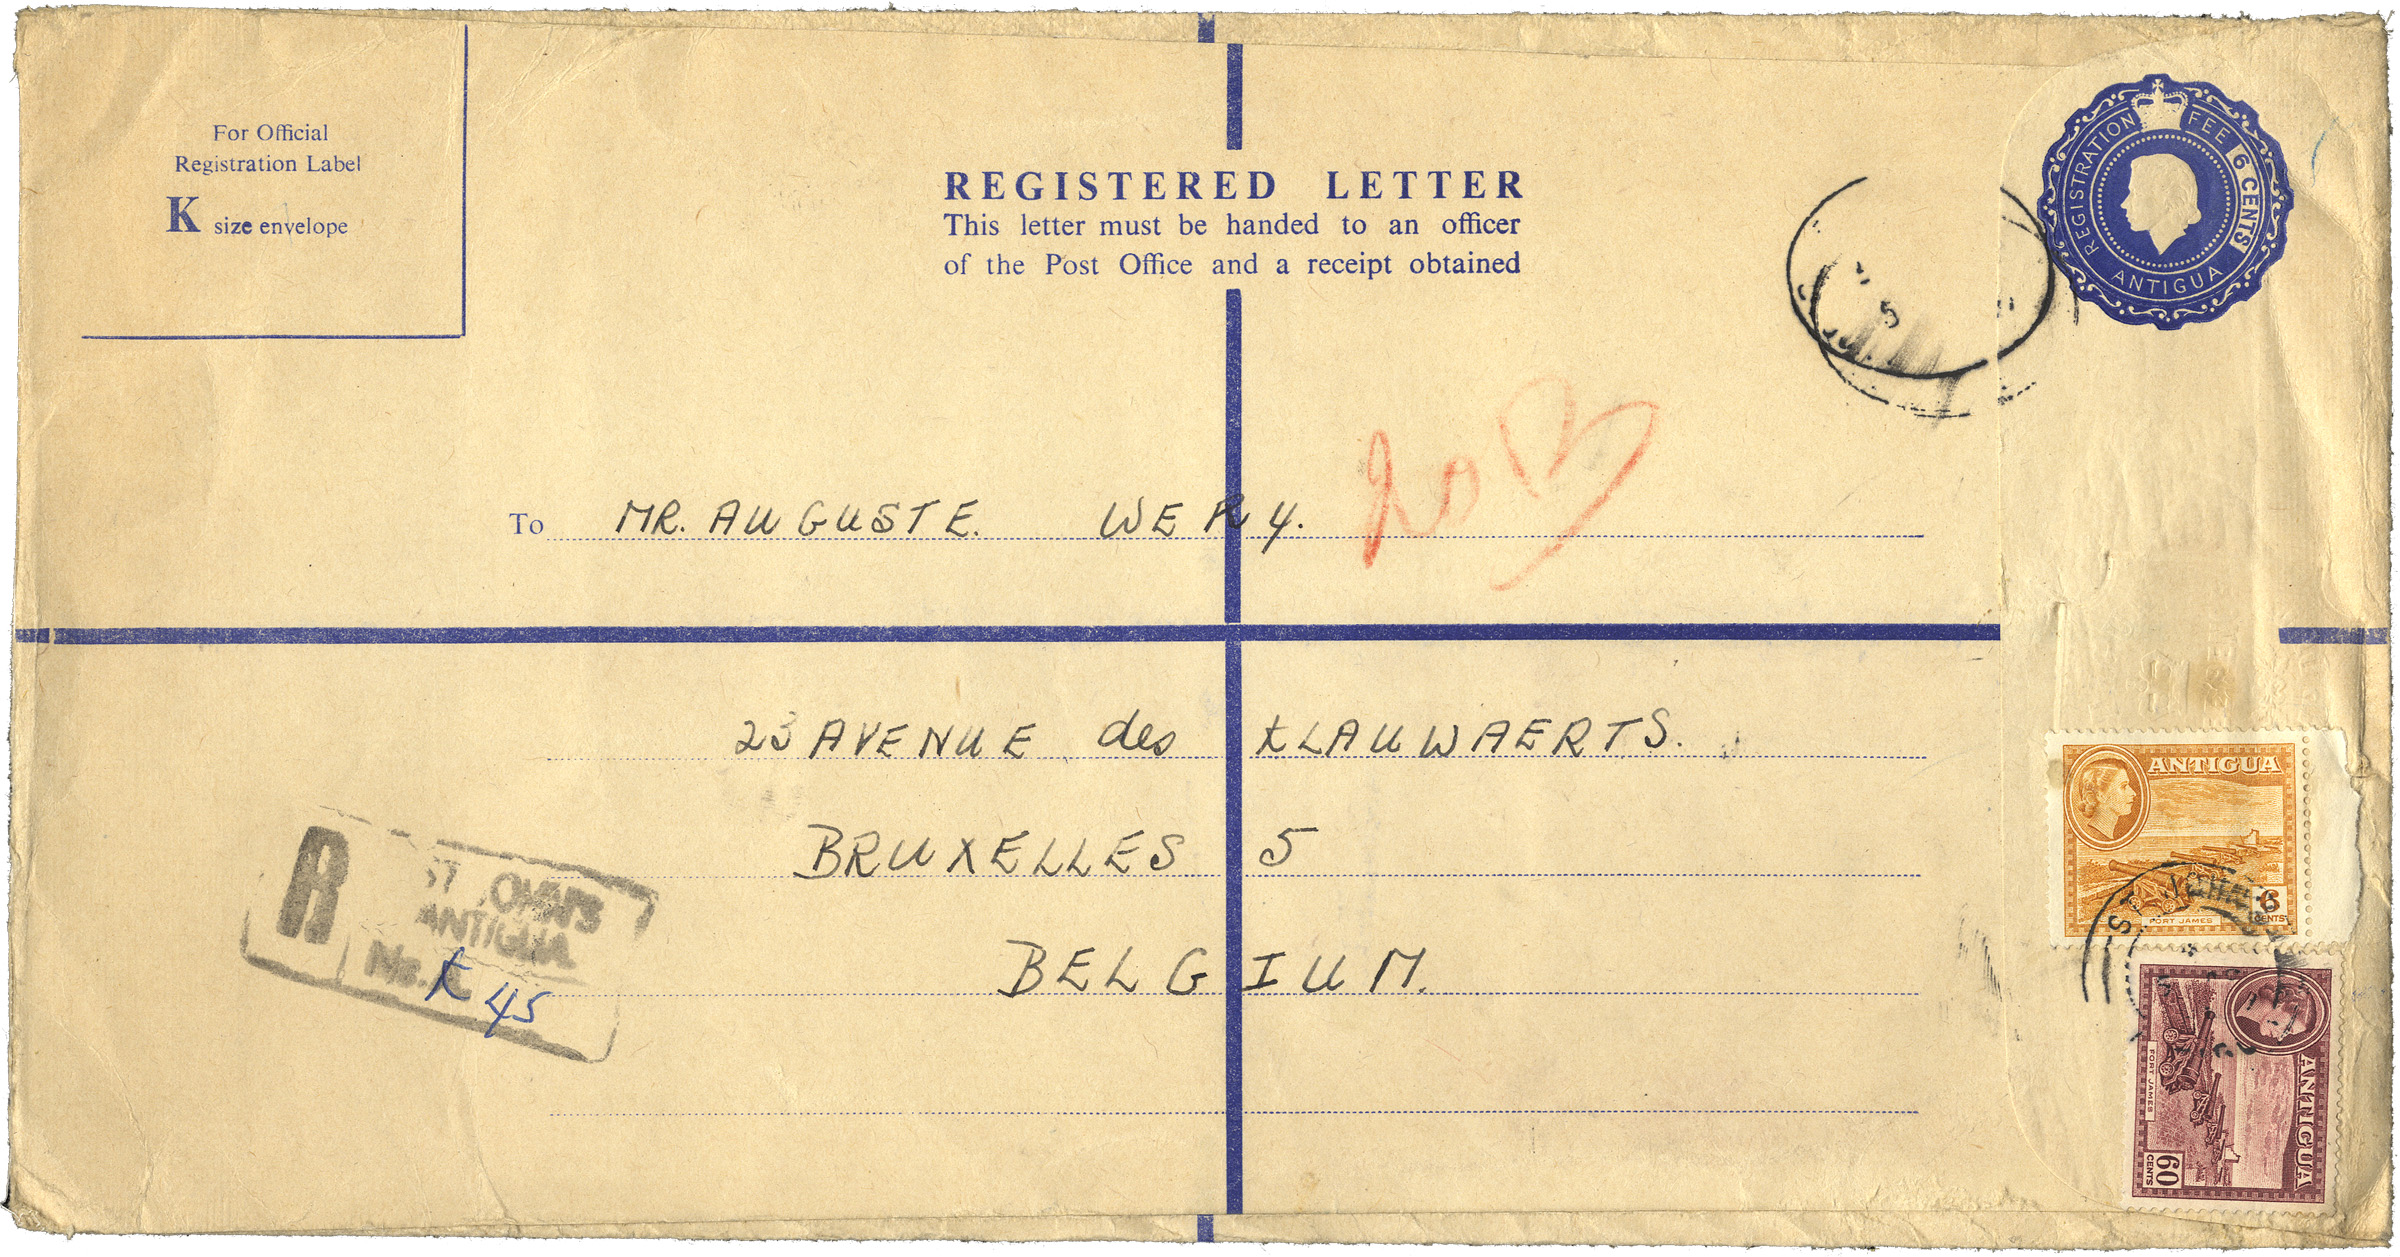 For Official
Registration Label
K size envelope
REGISTERED LETTER
This letter must be handed to an officer
of the Post Office and a receipt obtained
REGISTRATION FEE 6 CENTS
ANTIGUA
5
20
To MR. AUGUSTE. WERY.
23 AVENUE des KLAUWAERTS.
BRUXELLES 5
BELGIUM.
R
ST
ANTIGUA
No. K 45
ANTIGUA
FORT JAMES
6
CENTS
ST. JOHN'S
ANTIGUA
FORT JAMES
60
CENTS